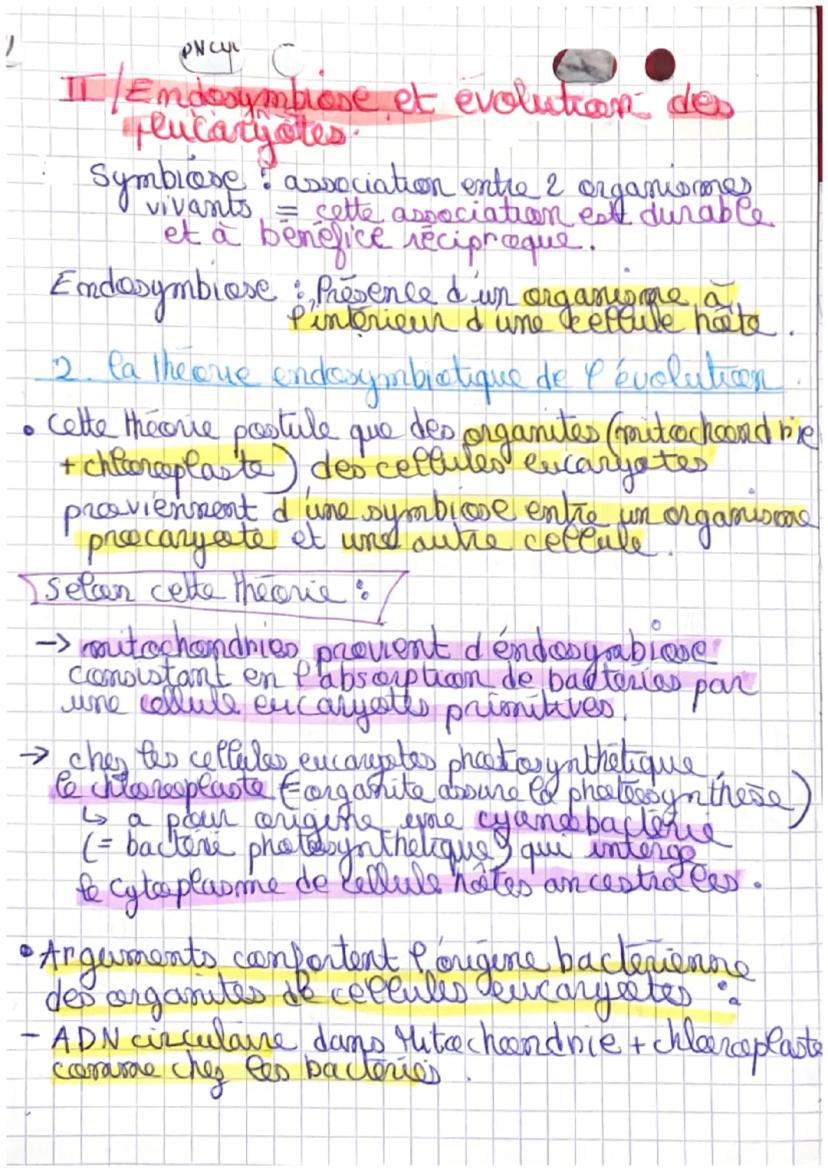 II/Endosymbiose et évolution des
eucaryotes.
Symbiose : association entre 2 organismes
vivants = cette association est durable
et à bénéfice réciproque.
Endosymbiose : Présence d'un organisme à
l'intérieur d'une cellule hôte.
2. la théorie endosymbiotique de l'évolution
• Cette théorie postule que des organites (mitochondrie
+ chloroplaste) des cellules eucaryotes
proviennent d'une symbiose entre un organisme
procaryote et une autre cellule.
Selon cette théorie :
→ mitochondries provient d'éndosymbiose
consistant en l'absorption de bactéries par
une cellule eucaryotes primitives.
→ chez les cellules eucaryotes photosynthétique,
le chloroplaste (organite assure la photosynthèse)
↳ a pour origine une cyanobactérie
(= bactérie photosynthétique) qui interge
le cytoplasme de cellule hôtes ancestrales.
• Arguments confortent l'origine bactérienne
des organites de cellules eucaryotes :
- ADN circulaire dans Mitochondrie + chloroplaste
comme chez les bactéries.